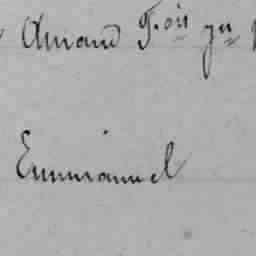 Amand F.ois
Emmanuel